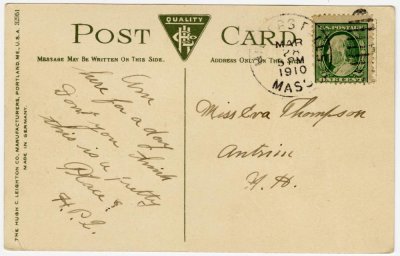 QUALITY
POST CARD
MESSAGE MAY BE WRITTEN ON THIS SIDE.
ADDRESS ONLY ON THIS
MAR
5 PM
1910
MASS
ONE CENT
Am
here for a day
Don't you think
this is a pretty
Place?
Miss Eva Thompson
Antrim
N.H.
THE HUGH C. LEIGHTON CO., MANUFACTURERS, PORTLAND, ME., U.S.A.
MADE IN GERMANY.